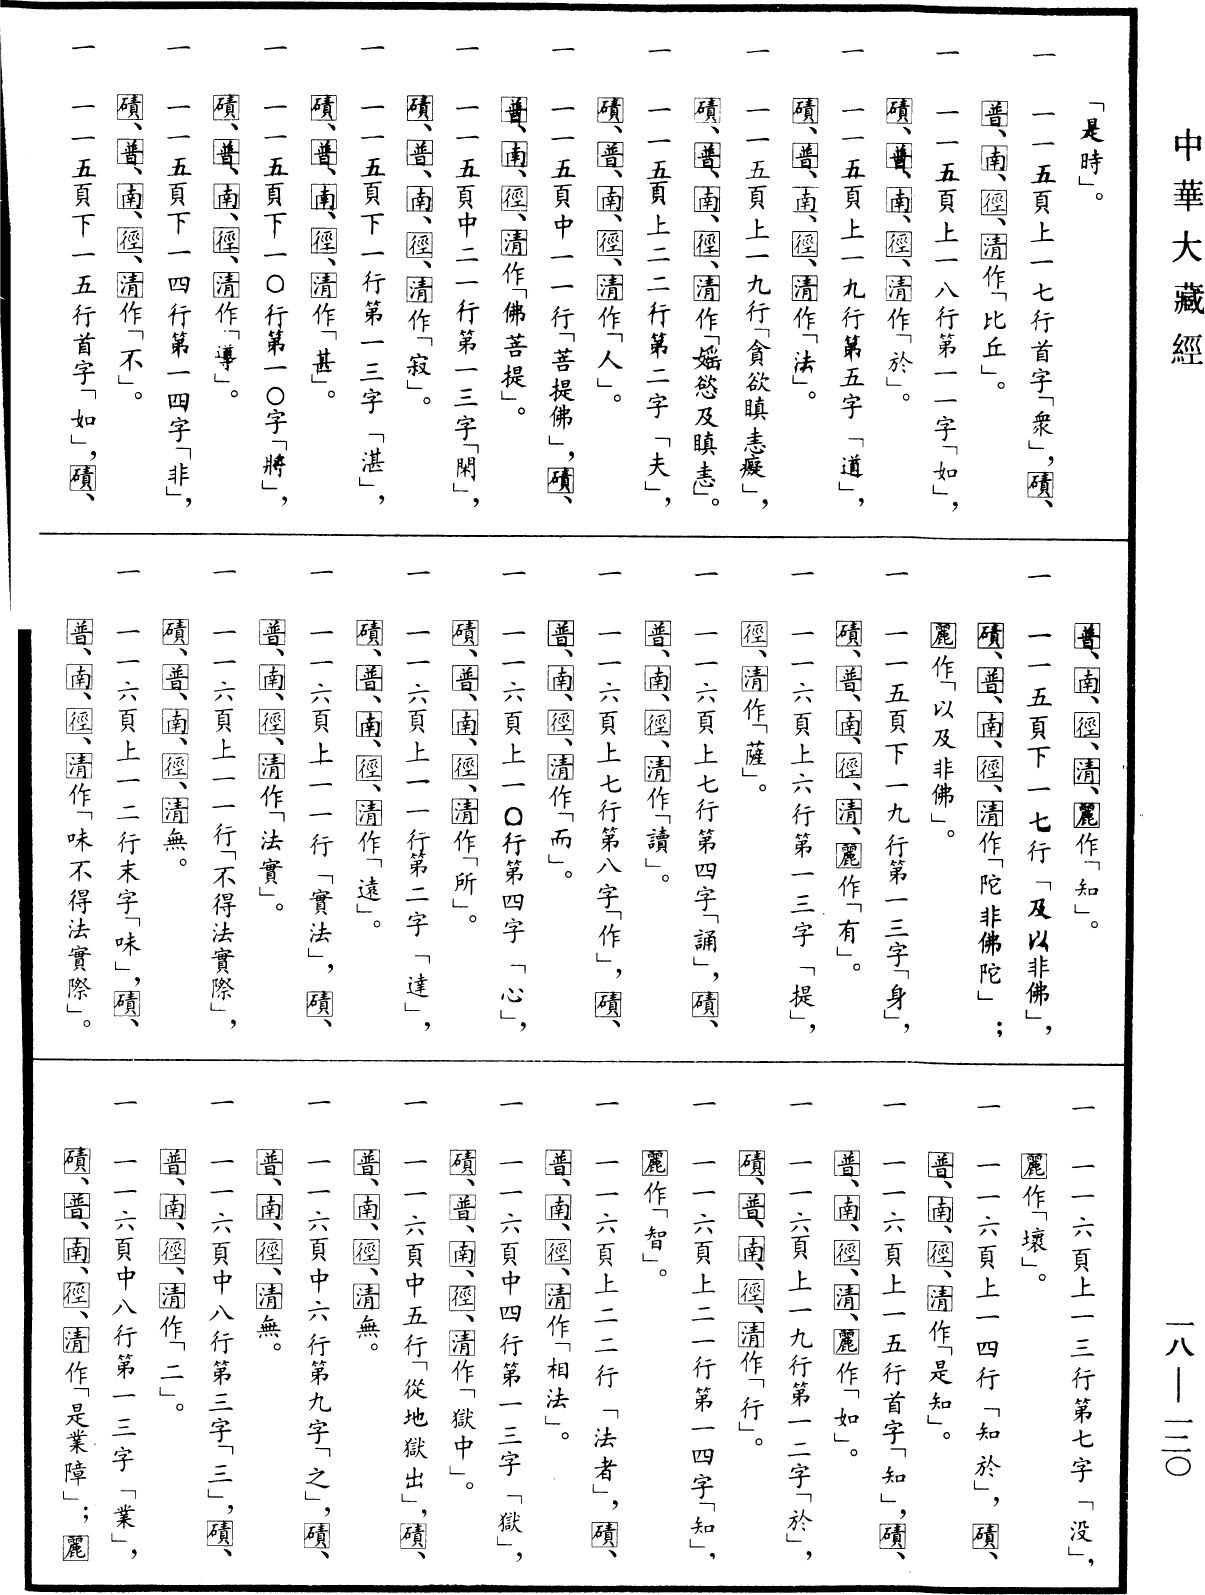 中華大藏經
「是時」。
一 一一五頁上一七行首字「衆」，磧、
普、南、徑、清作「比丘」。
一 一一五頁上一八行第一一字「如」，
磧、普、南、徑、清作「於」。
一 一一五頁上一九行第五字「道」，
磧、普、南、徑、清作「法」。
一 一一五頁上一九行「貪欲瞋恚癡」，
磧、普、南、徑、清作「婬慾及瞋恚」。
一 一一五頁上二二行第二字「夫」，
磧、普、南、徑、清作「人」。
一 一一五頁中一一行「菩提佛」，磧、
普、南、徑、清作「佛菩提」。
一 一一五頁中二一行第一三字「閑」，
磧、普、南、徑、清作「寂」。
一 一一五頁下一行第一三字「湛」，
磧、普、南、徑、清作「甚」。
一 一一五頁下一〇行第一〇字「將」，
磧、普、南、徑、清作「導」。
一 一一五頁下一四行第一四字「非」，
磧、普、南、徑、清作「不」。
一 一一五頁下一五行首字「如」，磧、
普、南、徑、清、麗作「知」。
一 一一五頁下一七行「及以非佛」，
磧、普、南、徑、清作「陀非佛陀」；
麗作「以及非佛」。
一 一一五頁下一九行第一三字「身」，
磧、普、南、徑、清、麗作「有」。
一 一一六頁上六行第一三字「提」，
徑、清作「薩」。
一 一一六頁上七行第四字「誦」，磧、
普、南、徑、清作「讀」。
一 一一六頁上七行第八字「作」，磧、
普、南、徑、清作「而」。
一 一一六頁上一〇行第四字「心」，
磧、普、南、徑、清作「所」。
一 一一六頁上一一行第二字「達」，
磧、普、南、徑、清作「遠」。
一 一一六頁上一一行「實法」，磧、
普、南、徑、清作「法實」。
一 一一六頁上一一行「不得法實際」，
磧、普、南、徑、清無。
一 一一六頁上一二行末字「味」，磧、
普、南、徑、清作「味不得法實際」。
一 一一六頁上一三行第七字「没」，
麗作「壞」。
一 一一六頁上一四行「知於」，磧、
普、南、徑、清作「是知」。
一 一一六頁上一五行首字「知」，磧、
普、南、徑、清、麗作「如」。
一 一一六頁上一九行第一二字「於」，
磧、普、南、徑、清作「行」。
一 一一六頁上二一行第一四字「知」，
麗作「智」。
一 一一六頁上二二行「法者」，磧、
普、南、徑、清作「相法」。
一 一一六頁中四行第一三字「獄」，
磧、普、南、徑、清作「獄中」。
一 一一六頁中五行「從地獄出」，磧、
普、南、徑、清無。
一 一一六頁中六行第九字「之」，磧、
普、南、徑、清無。
一 一一六頁中八行第三字「三」，磧、
普、南、徑、清作「二」。
一 一一六頁中八行第一三字「業」，
磧、普、南、徑、清作「是業障」；麗
一八—一二〇